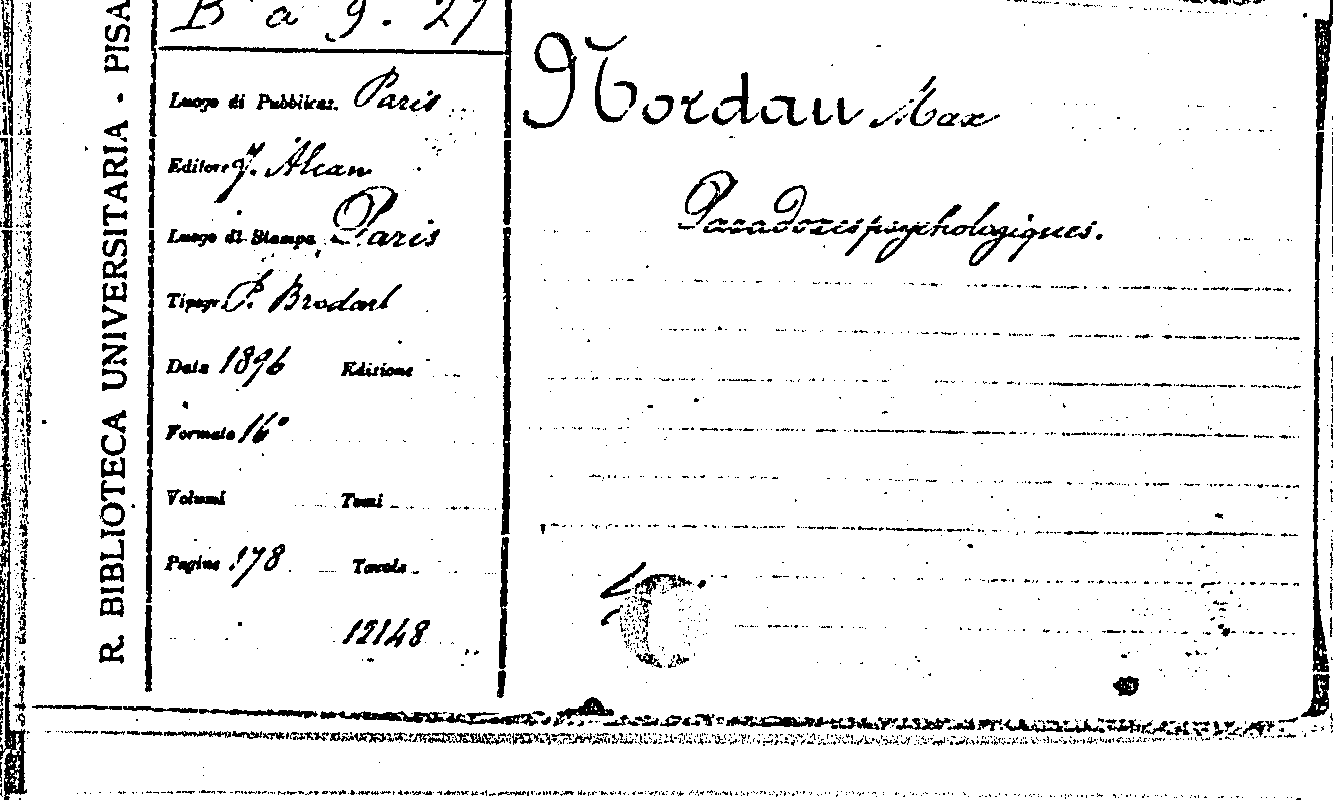 R. BIBLIOTECA UNIVERSITARIA - PISA
B a 9. 27
Luogo di Pubblicaz. Paris
Editore F. Alcan
Luogo di Stampa Paris
Tipogr. P. Brodart
Data 1896 Edizione
Formato 16°
Volumi Tomi
Pagine 178 Tavole
12148
Nordau Max
Paradoxes psychologiques.